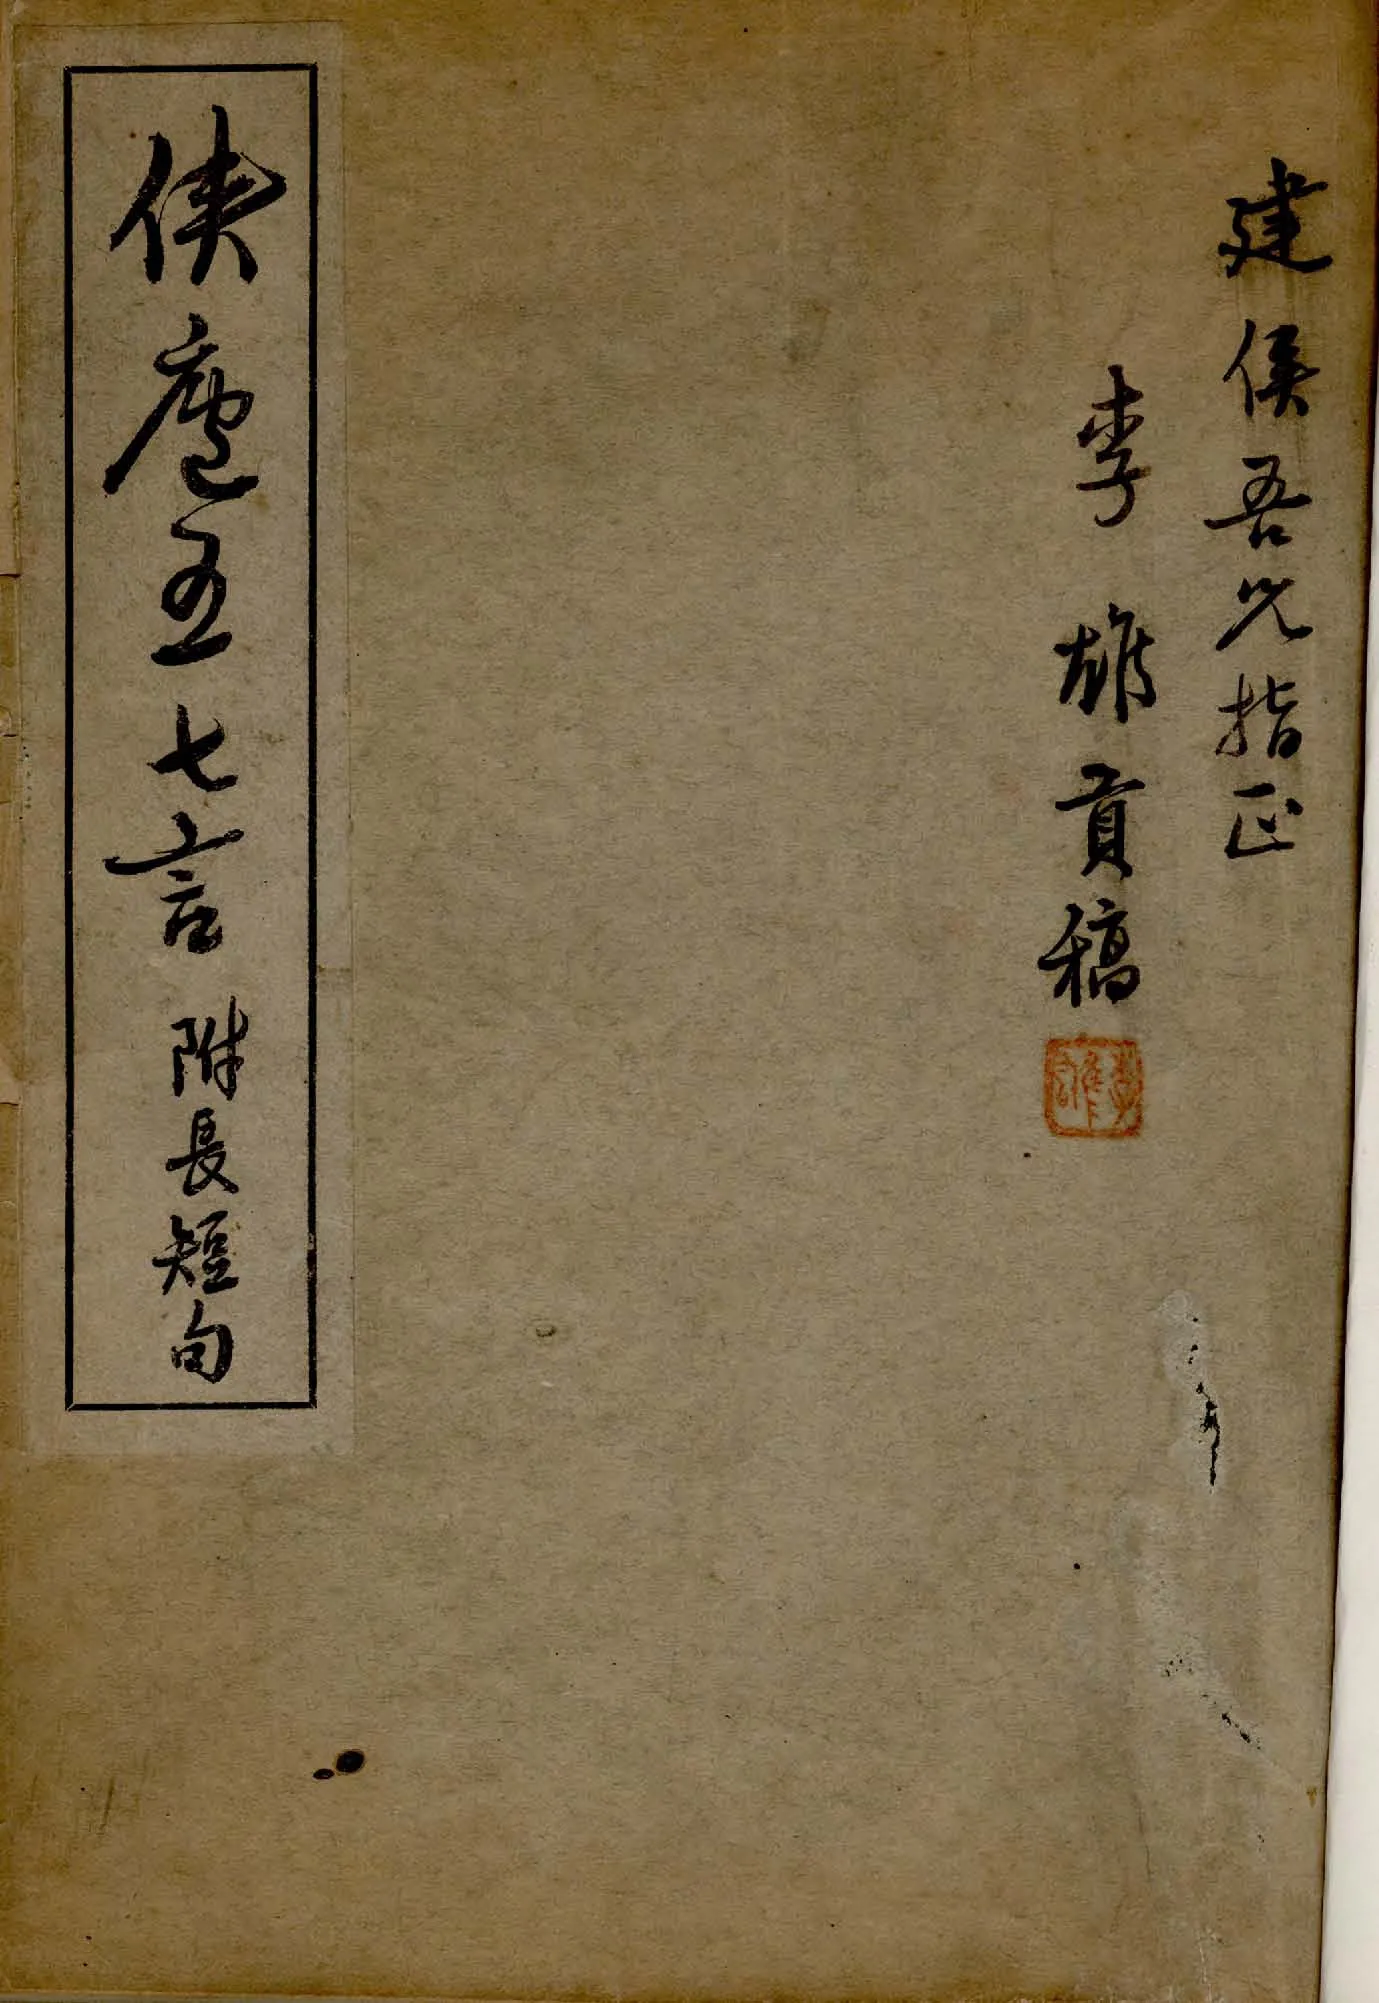 建侯吾兄指正
李雄貢稿
侠廬五七言 附長短句